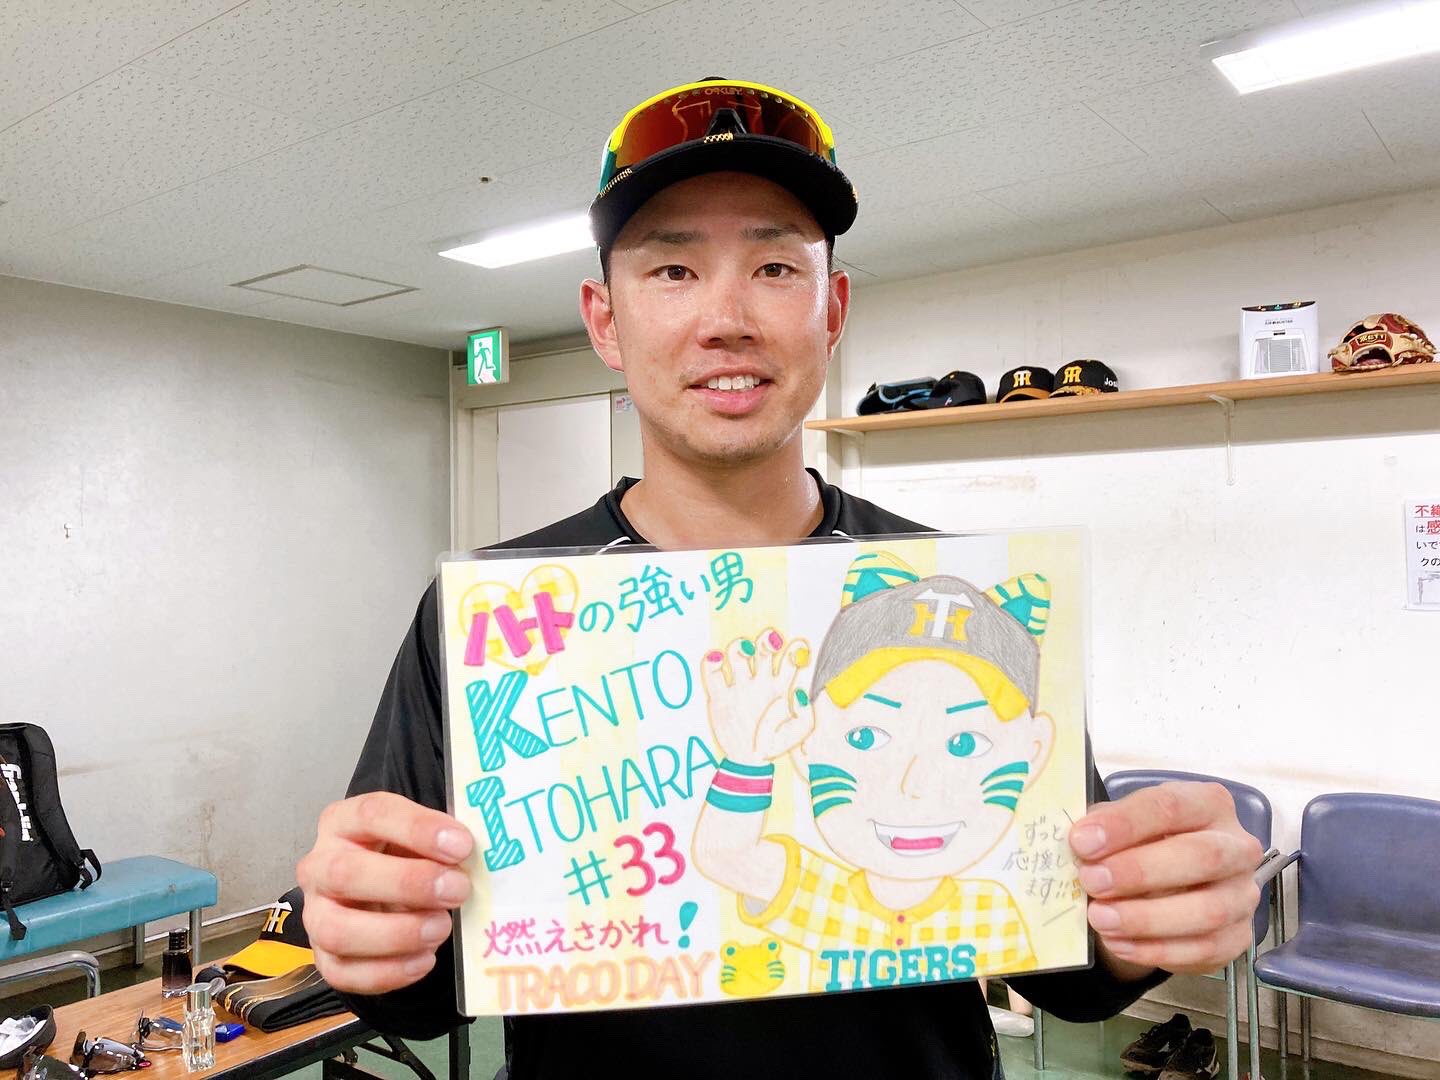 OAKLEY
AIR BUSTER
ZETT
Josh
不織
は感
いで
クの
ハートの強い男
KENTO
ITOHARA
#33
燃えさかれ!
TRACO DAY
TIGERS
ずっと
応援して
ます!!